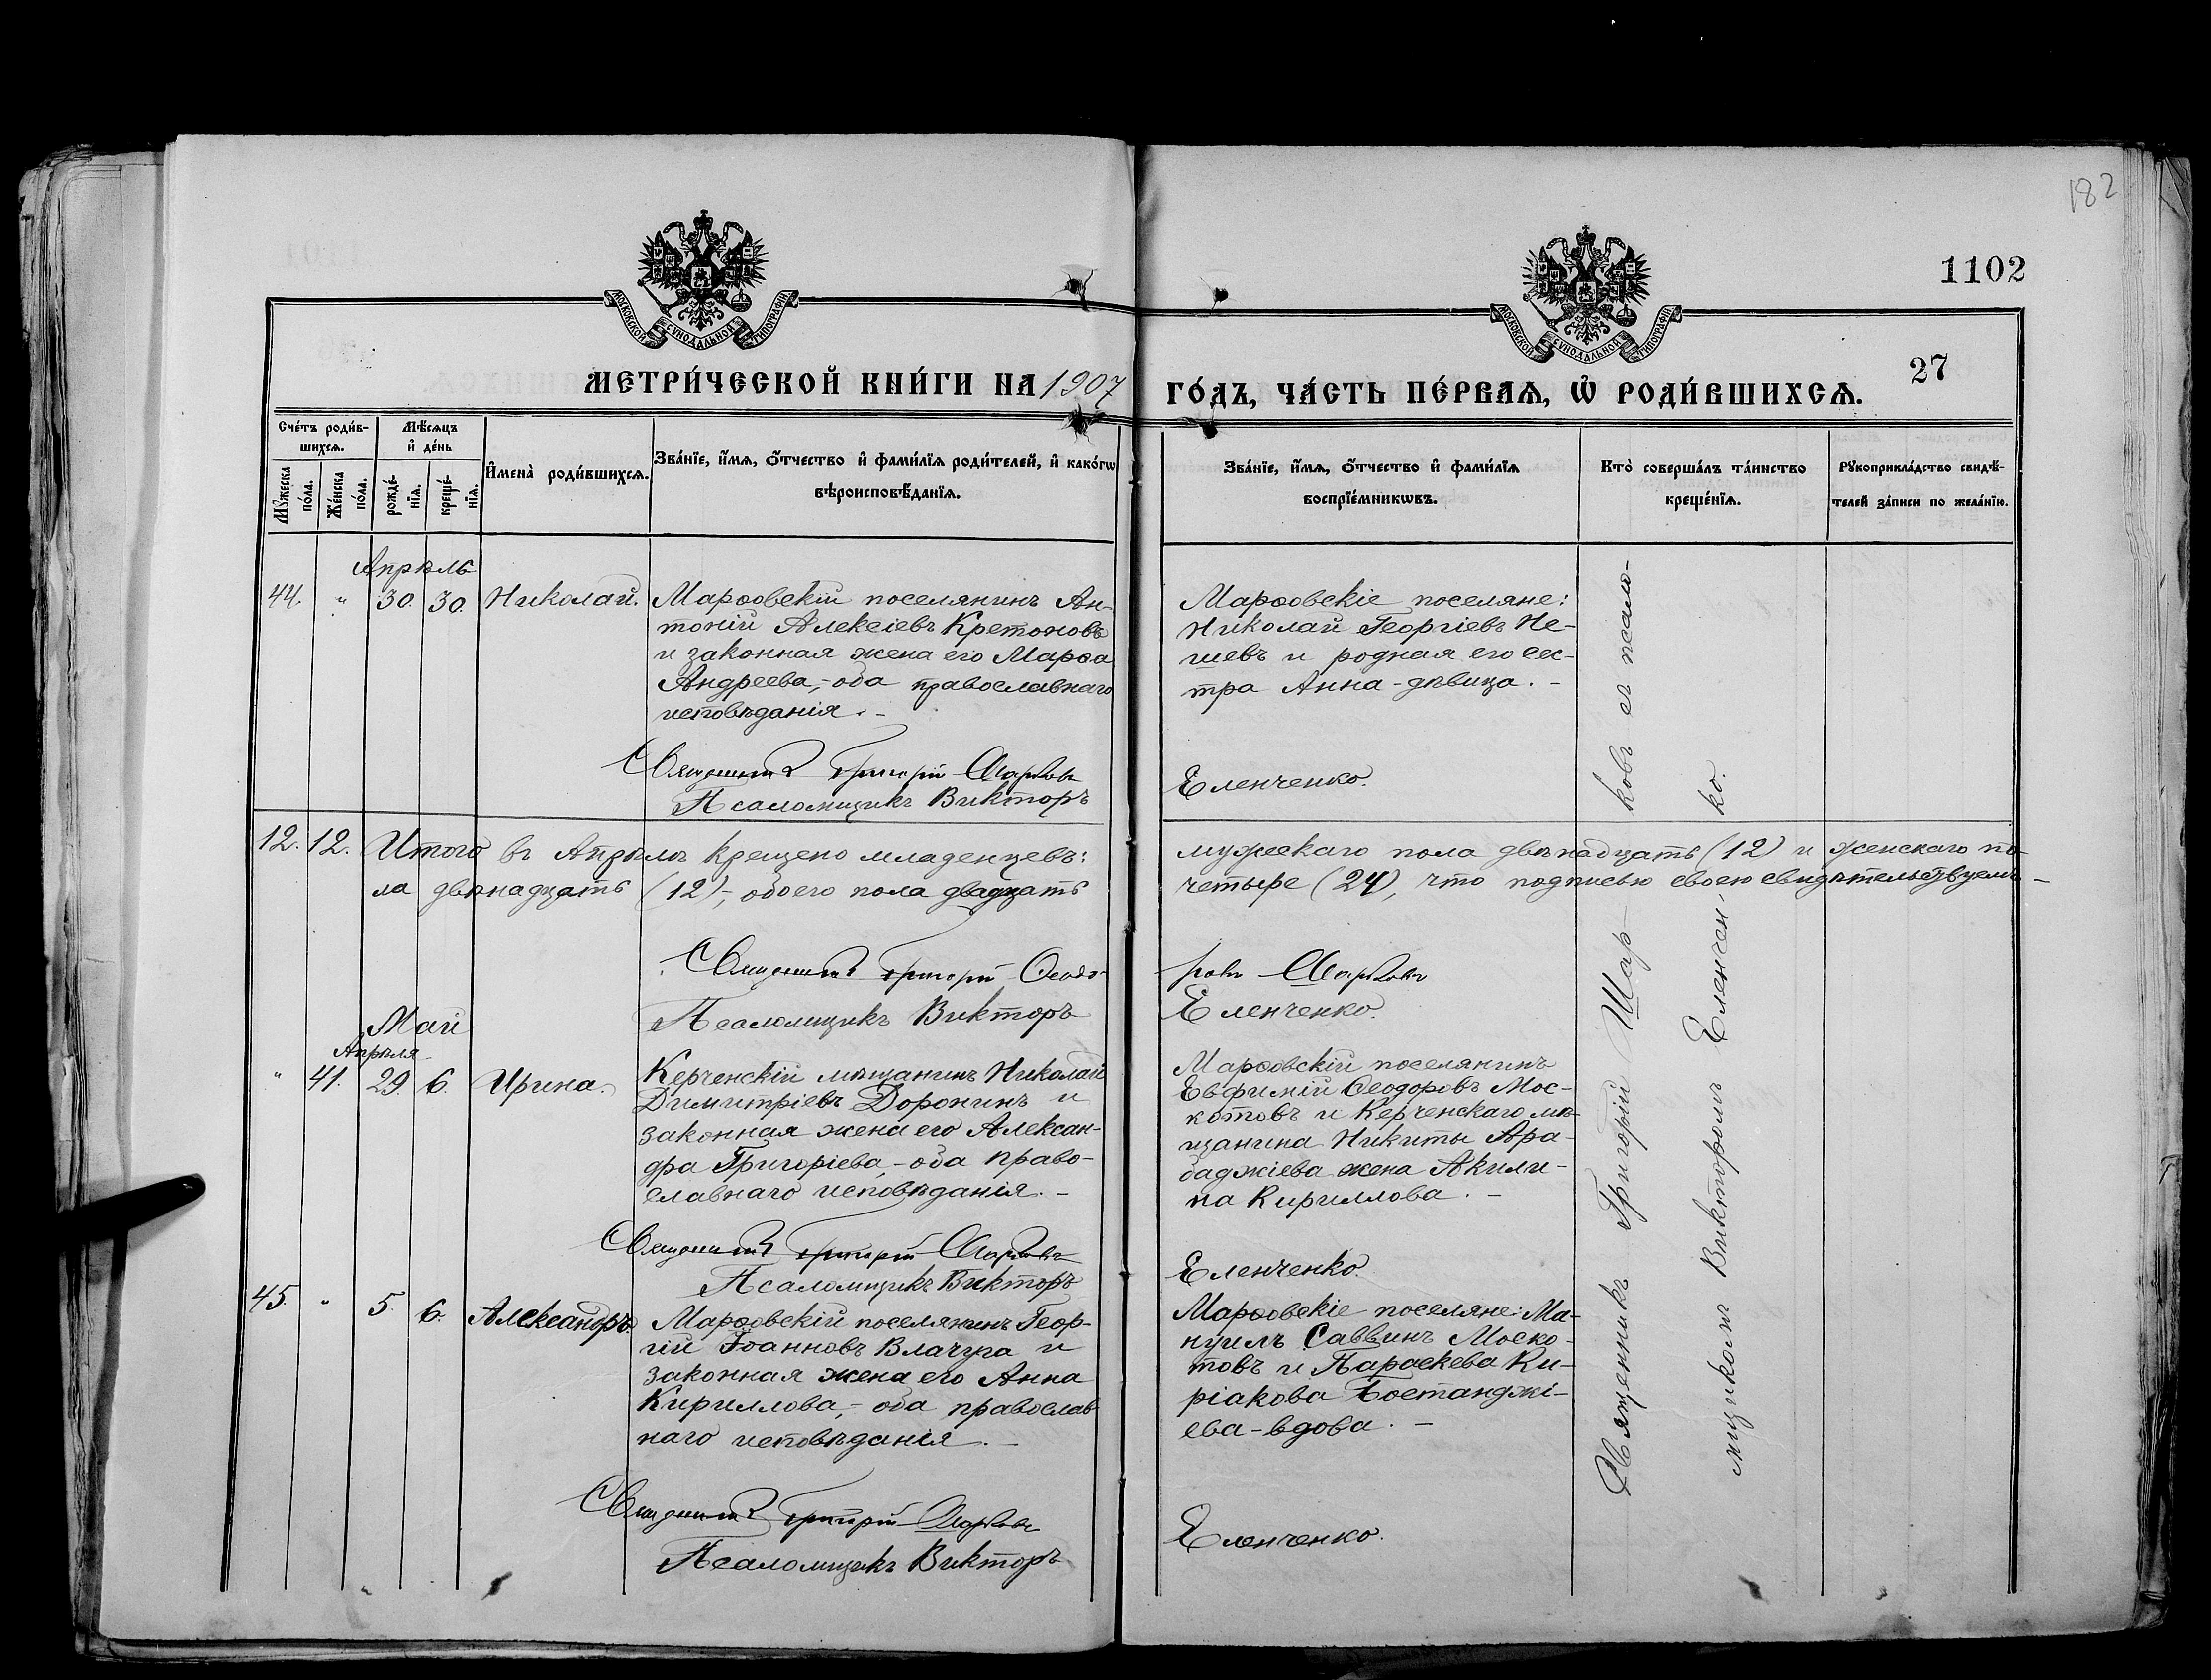 182
1102
27
МОСКОВСКОЙ СѴНОДАЛЬНОЙ ТИПОГРАФІИ
МОСКОВСКОЙ СѴНОДАЛЬНОЙ ТИПОГРАФІИ
МЕТРИ́ЧЕСКОЙ КНИ́ГИ НА 1907
ГО́ДЪ, ЧА́СТЬ ПЕ́РВАѦ, Ѽ РОДИ́ВШИХСѦ.
Сче́тъ роди́в-
шихсѧ.
Мꙋ́жеска
по́ла.
Же́нска
по́ла.
Мѣ́сяцъ
и҆ де́нь
рожде́-
нїѧ.
креще́-
нїѧ.
И҆мена̀ роди́вшихсѧ.
Зва́нїе, и҆́мѧ, ѻ҆́тчество и҆ фами́лїѧ роди́телей, и҆ како́гѡ
вѣроисповѣ́данїѧ.
Зва́нїе, и҆́мѧ, ѻ҆́тчество и҆ фами́лїѧ
воспрїе́мникѡвъ.
Кто̀ соверша́лъ та́инство
креще́нїѧ.
Рꙋкоприкла́дство свидѣ́-
телей за́писи по жела́нїю.
Апрѣль
44. " 30. 30. Николай.
Марѳовскій поселянинъ Ан-
тоній Алексіевъ Кретоновъ
и законная жена его Марѳа
Андреева,- оба православнаго
исповѣданія. -
Священникъ Григорій Шарковъ
Псаломщикъ Викторъ
Марѳовскіе поселяне:
Николай Георгіевъ Не-
шевъ и родная его сес-
тра Анна - дѣвица. -
Еленченко.
12. 12. Итого въ Апрѣлѣ крещено младенцевъ:
мужескаго пола двѣнадцать (12) и женскаго по-
ла двѣнадцать (12),- обоего пола двадцать
четыре (24), что подписью своею свидѣтельствуемъ. -
Священникъ Григорій Ѳеодо-
ровъ Шарковъ
Псаломщикъ Викторъ
Еленченко.
Май
Апрѣля
" 41. 29. 6. Ирина.
Керченскій мѣщанинъ Николай
Димитріевъ Доронинъ и
законная жена его Алексан-
дра Григоріева,- оба право-
славнаго исповѣданія. -
Священникъ Григорій Шарковъ
Псаломщикъ Викторъ
Марѳовскій поселянинъ
Евфимій Ѳеодоровъ Мос-
котовъ и Керченскаго мѣ-
щанина Никиты Ара-
баджіева жена Акили-
на Кириллова. -
Еленченко.
45. " 5. 6. Александръ.
Марѳовскій поселянинъ Геор-
гій Іоанновъ Влачуга и
законная жена его Анна
Кириллова,- оба православ-
наго исповѣданія. -
Священникъ Григорій Шарковъ
Псаломщикъ Викторъ
Марѳовскіе поселяне: Ма-
нуилъ Саввинъ Моско-
товъ и Параскева Ки-
ріакова Бостанджі-
ева - вдова. -
Еленченко.
Священникъ Григорій Шар-
ковъ съ псало-
мщикомъ Викторомъ Еленчен-
ко.